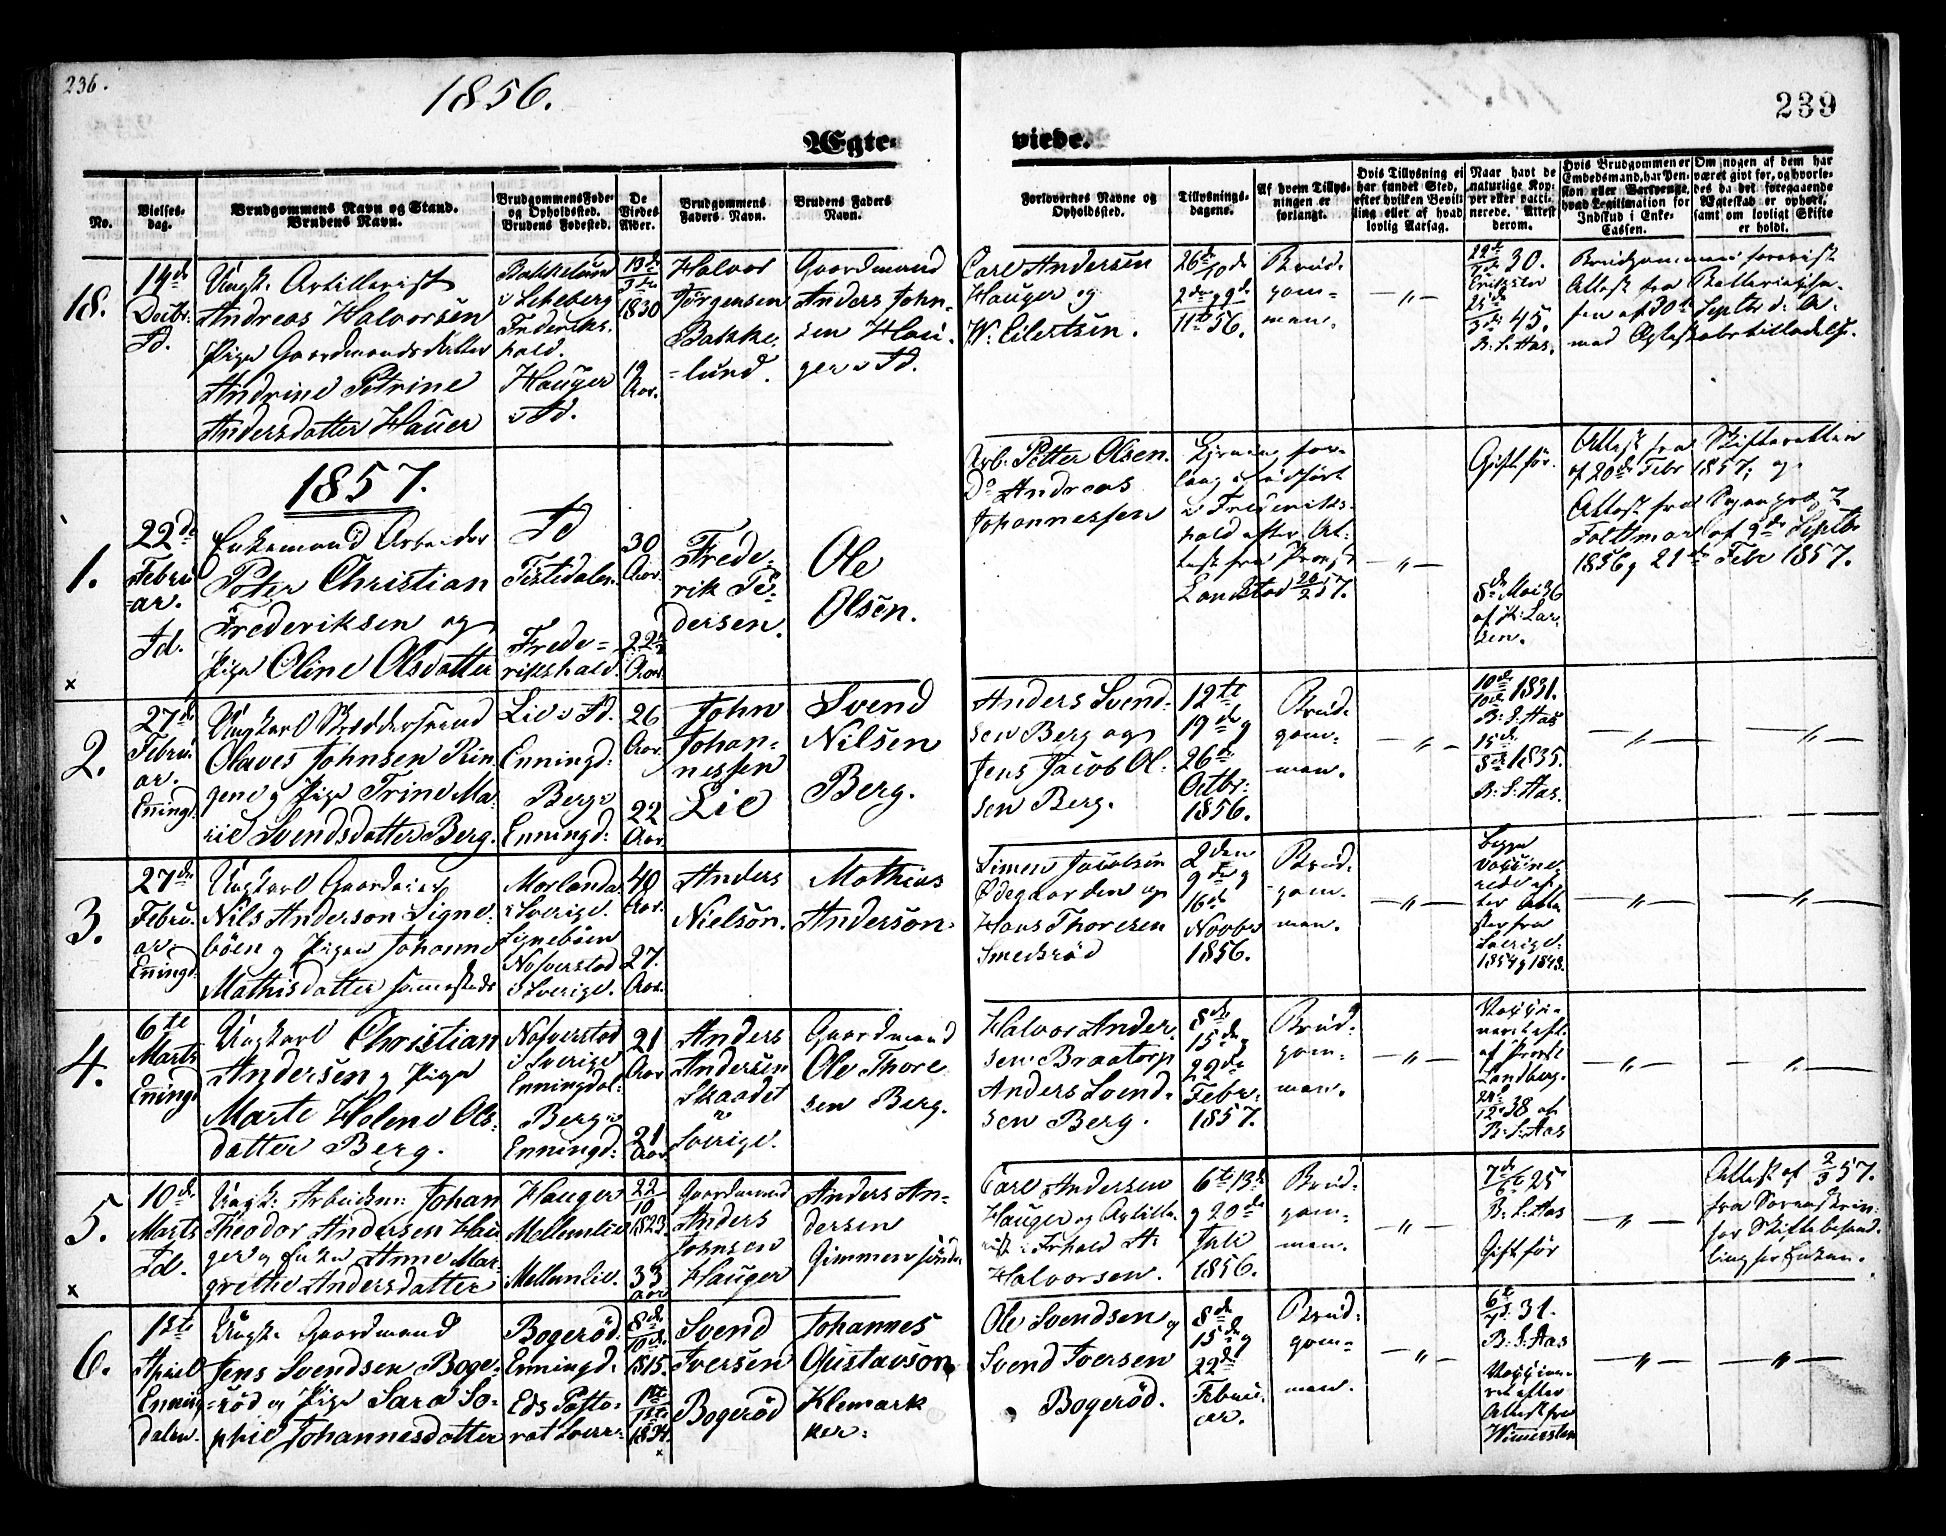 236.
1856.
239
Ægte-
viede.
No.
Vielses-
dag.
Brudgommens Navn og Stand.
Brudens Navn.
Brudgommens Føde-
og Opholdssted.
Brudens Fødested.
De
Viedes
Alder.
Brudgommens
Faders Navn.
Brudens Faders
Navn.
Forlovernes Navne og
Opholdssted.
Tillysnings-
dagene.
Af hvem Tillys-
ningen er
forlangt.
Hvis Tillysning ei
har fundet Sted,
efter hvilken Bevil-
ling eller af hvad
lovlig Aarsag.
Naar havt de
naturlige Kop-
per eller vacci-
nerede. Attest
derom.
Hvis Brudgommen er
Embedsmand, har Pen-
sion eller Vartpenge,
hvad Legitimation for
Indskud i Enke-
Cassen.
Om nogen af dem har
været gift før, og hvorle-
des da det foregaaende
Ægteskab er ophørt,
samt om lovligt Skifte
er holdt.
18.
14de
Id.
Ungk. Artillerist
Andreas Halvorsen
Pige Gaardmandsdatter
Andrine Petrine
Andersdatter Hauer
Bakkelund
Frederiks-
hald.
Hauger
i Id.
1830
19
Aar.
Halvor
Jørgensen
Bakke-
lund.
Gaardmand
Anders John-
sen Hau-
ger i Id.
Carl Andersen
Hauger og
W. Eilertsen.
26de
56.
Brud-
gom-
man.
— " —
30.
45.
B. S. Aas.
1857.
1.
22de
Febru-
ar.
Id.
Enkemand Arbeider
Peter Christian
Frederiksen og
Pige Oline Olsdatter
Id
Tistedalen.
Frede-
rikshald.
30
Aar.
22
Aar
Frede-
rik Pe-
dersen.
Ole
Olsen.
Arb. Petter Olsen.
Do Andreas
Johannessen
i Frederiks-
hald efter At-
test fra Provst
Landstad 57.
— " —
Gift før.
8de Mai 36
af K. Lar-
sen.
Attest fra Skifteretten
af 20de Febr 1857, og
1856 og 21de Febr 1857.
x
2.
27de
Febru-
ar.
Enningd.
Ungkarl Skrædersvend
Olaves Johnsen Rin-
gene og Pige Trine Ma-
rie Svendsdatter Berg.
Lie i Id.
Enningd.
Berg i
Enningd:
26
Aar.
22
Aar.
John
Johan-
nessen
Lie
Svend
Nilsen
Berg.
Anders Svend-
sen Berg og
Jens Jacob Ol-
sen Berg.
12te
19de og
26de
Octbr:
1856.
Brud-
gom-
man.
— " —
10de 1831.
B. S. Aas
15de
1835.
B. S. Aas.
— " —
— " —
3.
27de
Febru-
ar.
Enningd.
Ungkarl Gaardeier
Nils Anderson Signe-
böen og Pigen Johanne
Mathisdatter sammesteds
Morlanda
i Sverige.
Signebøen
Nafverstad
i Sverige.
40
Aar.
27.
Aar.
Anders
Nielson.
Mathias
Anderson.
Simen Jacobsen
Ødegaarden og
Hans Thoresen
Smedsrød
2den
9de og
16de
Novbr
1856.
Brud-
gom-
man.
— " —
begge
vaccine-
rede af-
ter Atte-
ster fra
Sverige.
1854 og 1843.
— " —
— " —
4.
6te
Marts
Enningd
Ungkarl Christian
Andersen og Pige
Marte Helene Ols-
datter Berg.
Nafverstad
i Sverige
Enningdal:
Berg i
Enningd:
21
Aar
21
Aar.
Anders
Andersen
Skaadet
i
Sverige.
Gaardmand
Ole Thore-
sen Berg.
Halvor Ander-
sen Braatorp
Anders Svend-
sen Berg.
8de
15de og
22de
Febr.
1857.
Brud-
gom-
man.
— " —
af Provst
Landberg.
38 af
B. S. Aas
— " —
— " —
5.
10de
Marts
Id.
Ungk: Arbeidsm: Johan
Theodor Andersen Hau-
ger og Enke Anne Mar-
grethe Andersdatter
Hauger
Mellemlie
Mellemlie.
22
10
1823.
33
Aar
Gaardmand
Anders
Johnsen
Hauger
Anders An-
dersen
Gimmen søndre
Carl Andersen
Hauger og Artille-
rist i Frhald A:
Halvorsen.
6te 13de
og 20de
Juli
1856.
Brud-
gom-
man.
— " —
7de 25
B. S. Aas
Gift før
— " —
Attest af 2/3 57.
fra Sorenskriv:
for Skiftebehand-
ling for Enken.
x
6.
1ste
April
Enning-
dalen.
Ungk. Gaardmand
Jens Svendsen Boge-
rød og Pige Sara So-
phie Johannesdatter
Bogerød.
Enningd.
Eds Pasto-
rat Sverr:
8de
10de
1815.
1ste
1834.
x
Svend
Iversen
Bogerød
Johannes
Gustavson
Klemark
ker.
Ole Svendsen og
Svend Iversen
Bogerød.
8de
15de og
22de
Febru-
ar.
Brud-
gom-
man.
— " —
6te
31.
B. S. Aas
Vaccine-
ret efter
Attest fra
— " —
— " —